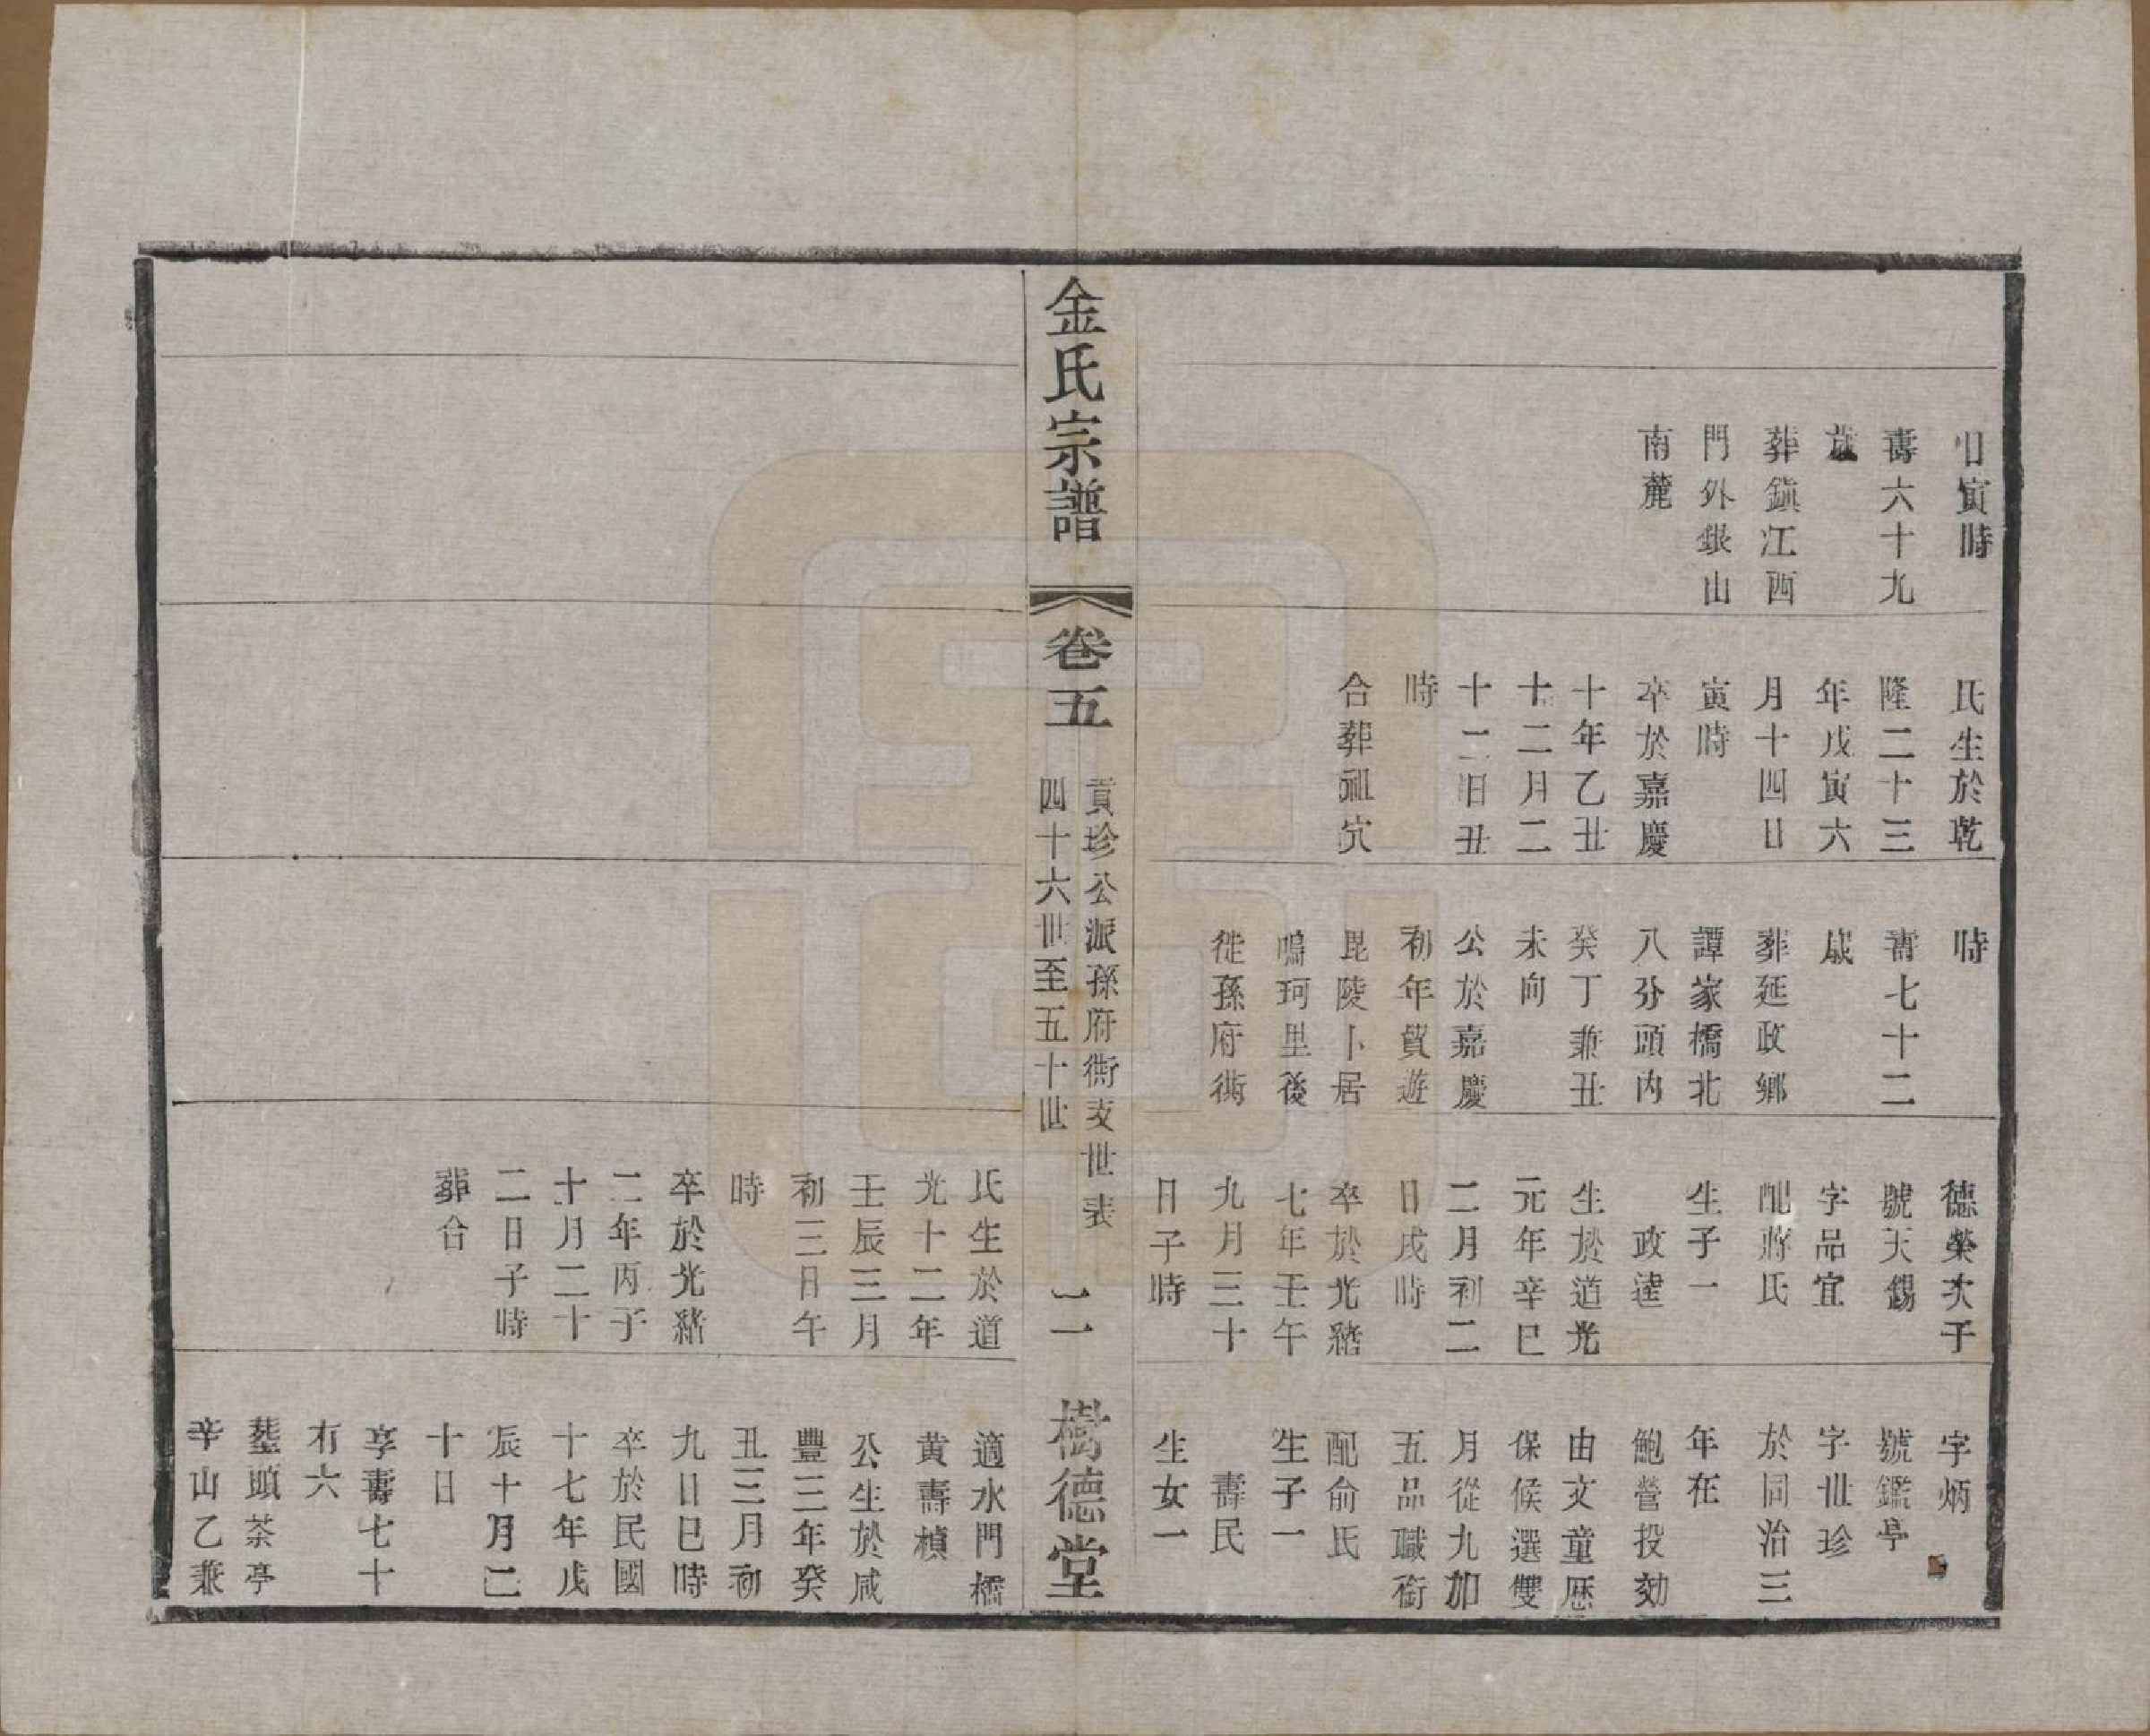 日寅時
壽六十九
歲
葬鎭江西
門外銀山
南麓
氏生於乾
隆二十三
年戊寅六
月十四日
寅時
卒於嘉慶
十年乙丑
十二月二
十二日丑
時
合葬祖穴
時
壽七十二
歲
葬延政鄉
譚家橋北
八分頭內
癸丁兼丑
未向
公於嘉慶
初年貿遊
毘陵卜居
鳴珂里後
徙孫府衖
德榮次子
號天錫
字品宜
配蔣氏
生子一
政達
生於道光
元年辛巳
二月初二
日戌時
卒於光緒
七年壬午
九月三十
日子時
字炳
號鑑亭
字世珍
於同治三
年在
鮑營投効
由文童歷
保候選雙
月從九加
五品職銜
配俞氏
生子一
壽民
生女一
金氏宗譜
卷五
貢珍公派孫府衖支世表
四十六世至五十世
二
樹德堂
氏生於道
光十二年
壬辰三月
初三日午
時
卒於光緒
二年丙子
十月二十
二日子時
葬合
適水門橋
黃壽楨
公生於咸
豐三年癸
丑三月初
九日巳時
卒於民國
十七年戊
辰十月二
十日
享壽七十
有六
塟頭茶亭
辛山乙兼